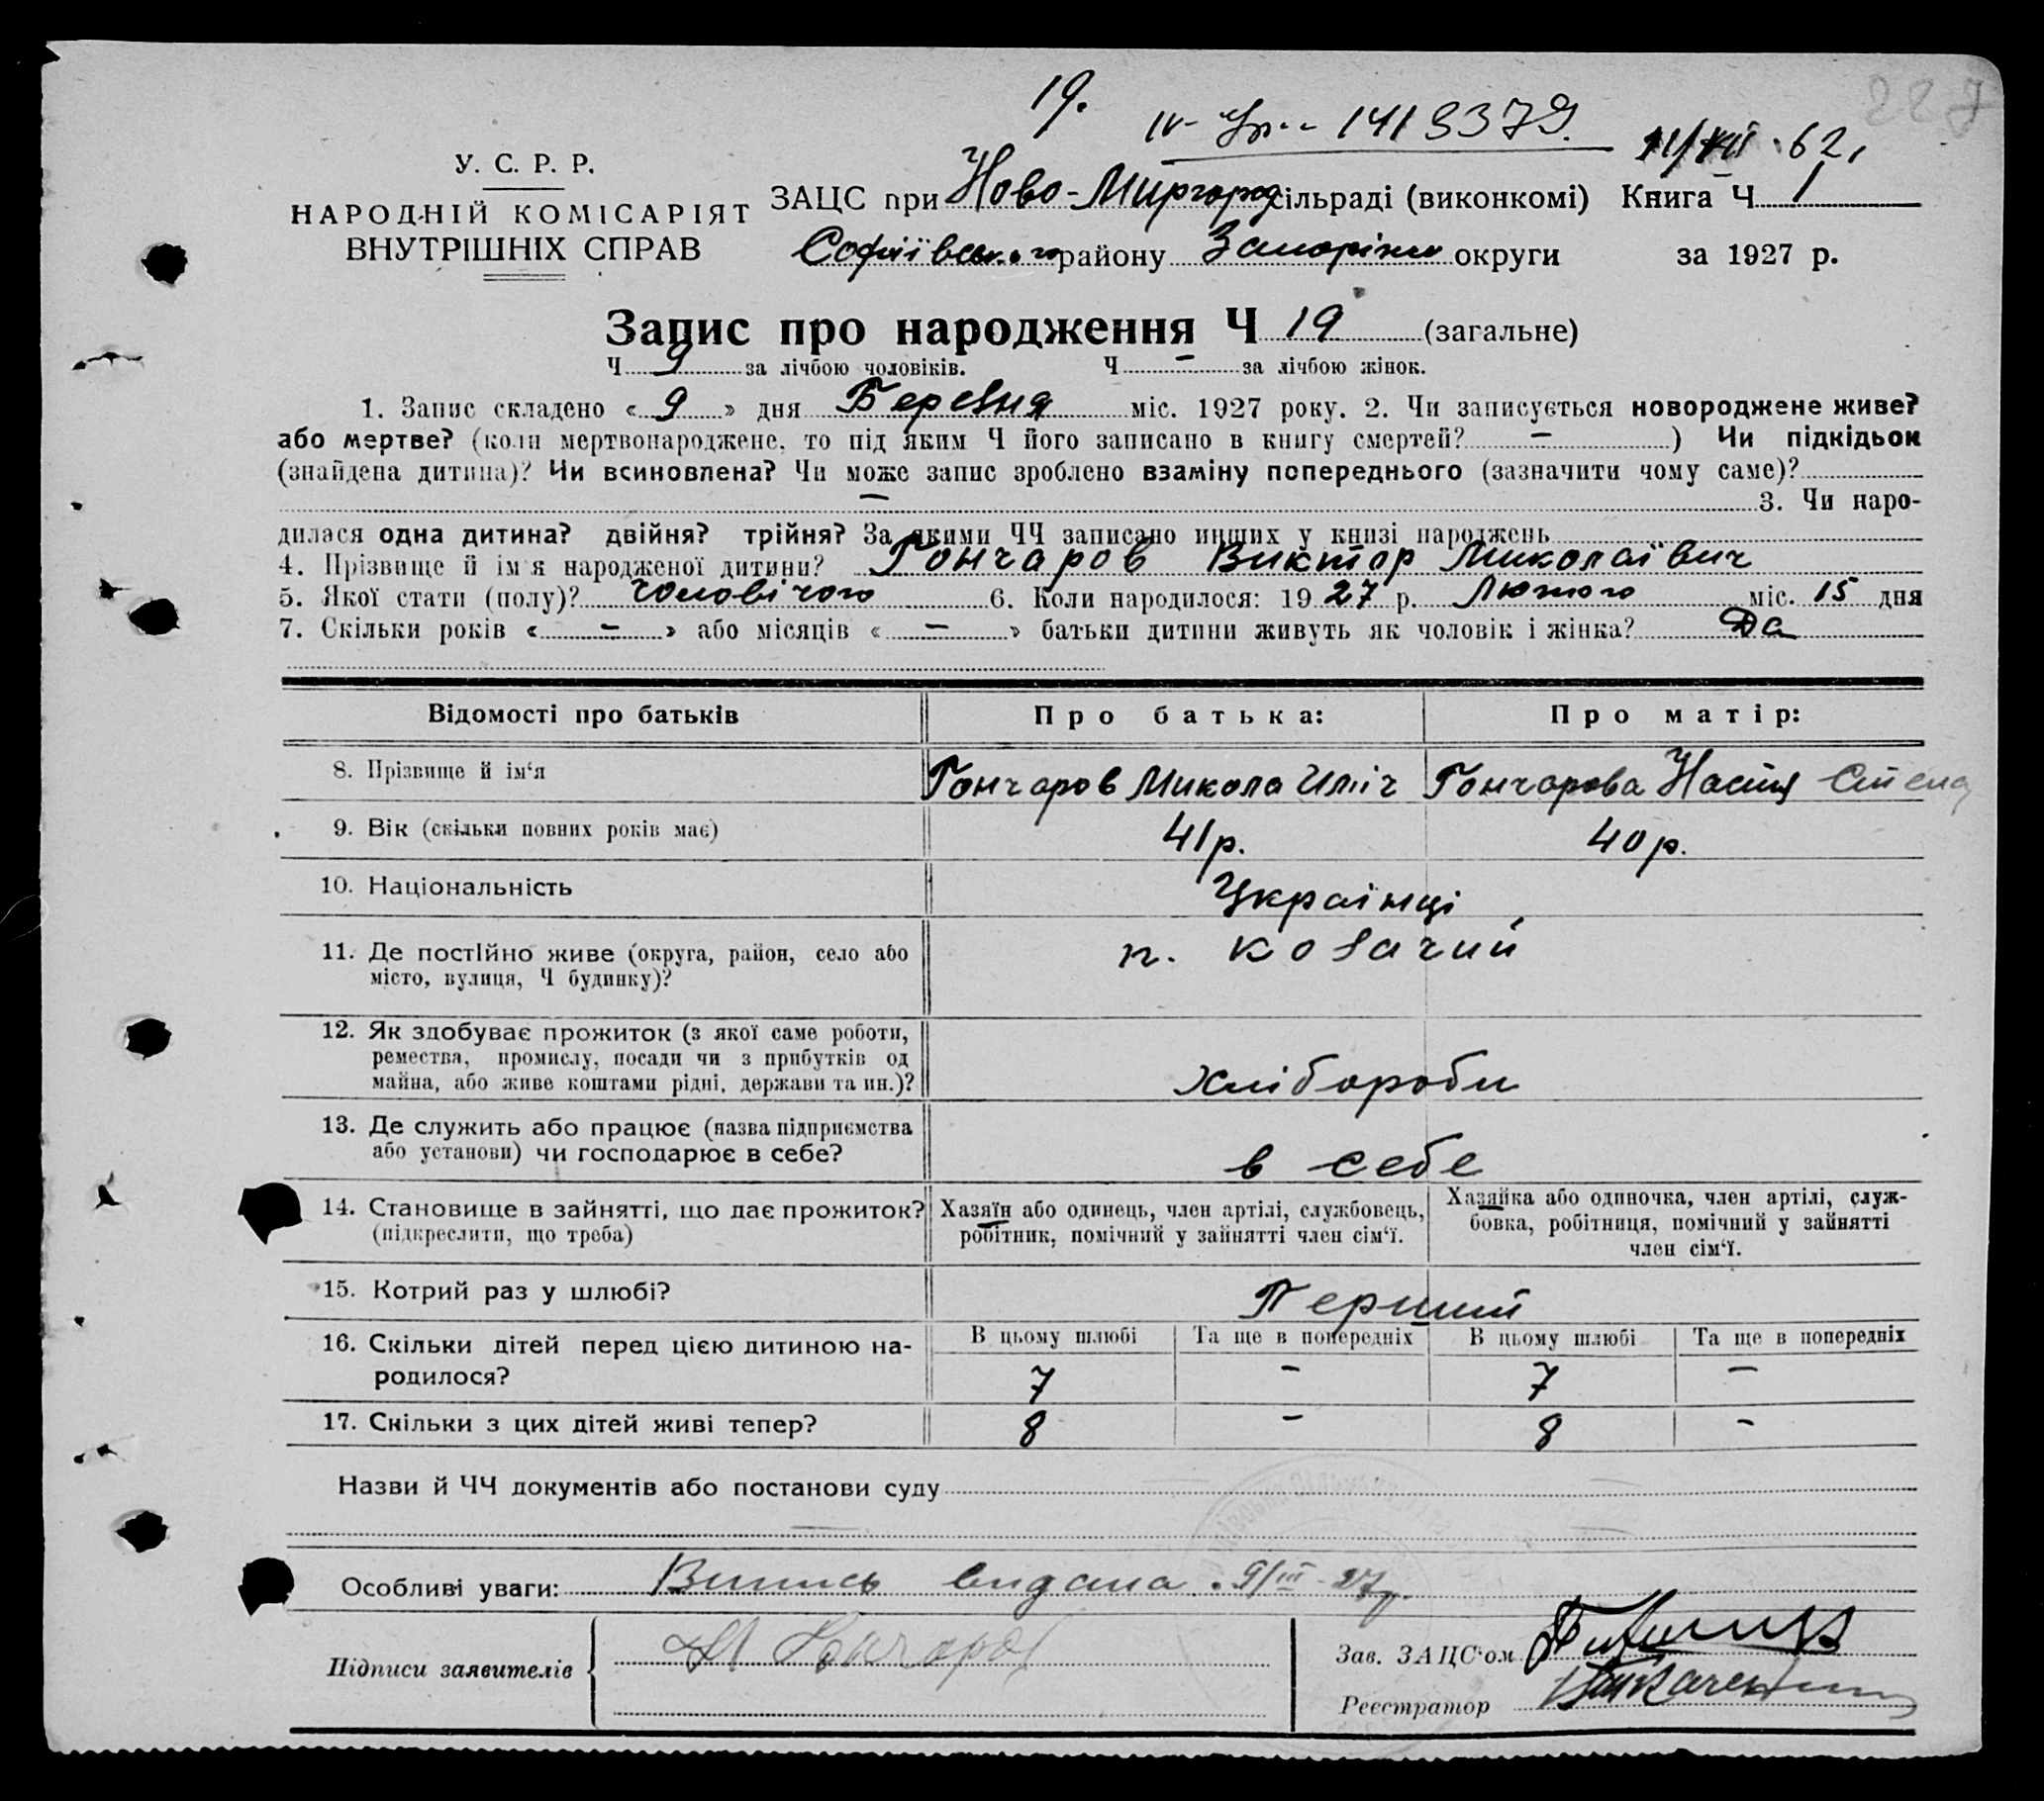 19.
227
1413379. 11/VII 62,
У. С. Р. Р.
НАРОДНІЙ КОМІСАРІЯТ
ВНУТРІШНІХ СПРАВ
ЗАЦС при Ново-Миргород сільраді (виконкомі) Книга Ч 1
Софіївського району Запоріжж округи за 1927 р.
Запис про народження Ч 19 (загальне)
Ч 9 за лічбою чоловіків. Ч — за лічбою жінок.
1. Запис складено « 9 » дня Березня міс. 1927 року. 2. Чи записується новороджене живе?
або мертве? (коли мертвонароджене, то під яким Ч його записано в книгу смертей? — ) Чи підкідьок
(знайдена дитина)? Чи всиновлена? Чи може запис зроблено взаміну попереднього (зазначити чому саме)?
— 3. Чи наро-
дилася одна дитина? двійня? трійня? За якими ЧЧ записано инших у книзі народжень
4. Прізвище й ім'я народженої дитини? Гончаров Виктор Миколаївич
5. Якої стати (полу)? Чоловічого 6. Коли народилося: 19 27 р. Лютого міс. 15 дня
7. Скільки років « — » або місяців « — » батьки дитини живуть як чоловік і жінка? Да
Відомості про батьків Про батька: Про матір:
8. Прізвище й ім'я Гончаров Микола Ілліч Гончарова Настя Степа
9. Вік (скільки повних років має) 41 р. 40 р.
10. Національність Українці
11. Де постійно живе (округа, район, село або
місто, вулиця, Ч будинку)? п. Козачий
12. Як здобуває прожиток (з якої саме роботи,
ремества, промислу, посади чи з прибутків од
майна, або живе коштами рідні, держави та ин.)? хлібороби
13. Де служить або працює (назва підприємства
або установи) чи господарює в себе? в себе
14. Становище в зайнятті, що дає прожиток?
(підкреслити, що треба)
Хазяїн або одинець, член артілі, службовець,
робітник, помічний у зайнятті член сім'ї.
Хазяйка або одиночка, член артілі, служ-
бовка, робітниця, помічний у зайнятті
член сім'ї.
15. Котрий раз у шлюбі? Перший
В цьому шлюбі Та ще в попередніх В цьому шлюбі Та ще в попередніх
16. Скільки дітей перед цією дитиною на-
родилося? 7 — 7 —
17. Скільки з цих дітей живі тепер? 8 — 8 —
Назви й ЧЧ документів або постанови суду
Особливі уваги: Випись видана. 9/III 27р.
Підписи заявителів Гончаров
Зав. ЗАЦС'ом
Реєстратор